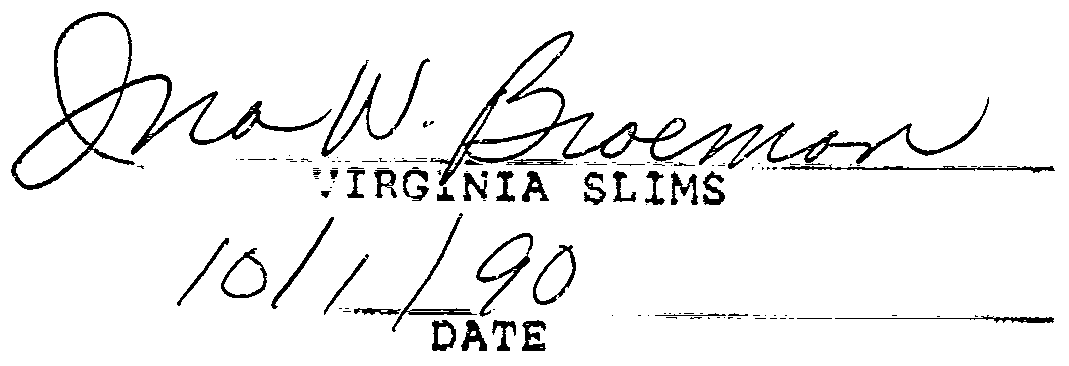 Ina W. Broeman
VIRGINIA SLIMS
10/1/90
DATE